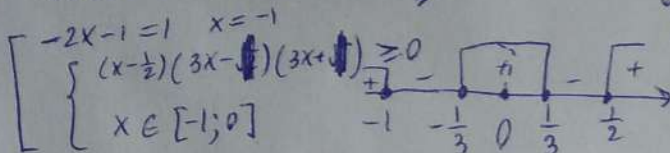 -2x-1=1 x=-1
(x-½)(3x-)(3x+) ≥0
x ∈ [-1;0]
+ - + - +
-1 -⅓ 0 ⅓ ½